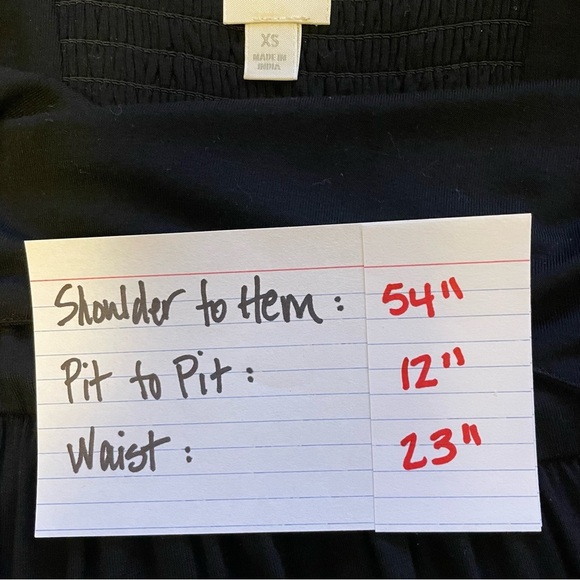 XS
MADE IN
INDIA
Shoulder to Hem: 54"
Pit to Pit: 12"
Waist: 23"